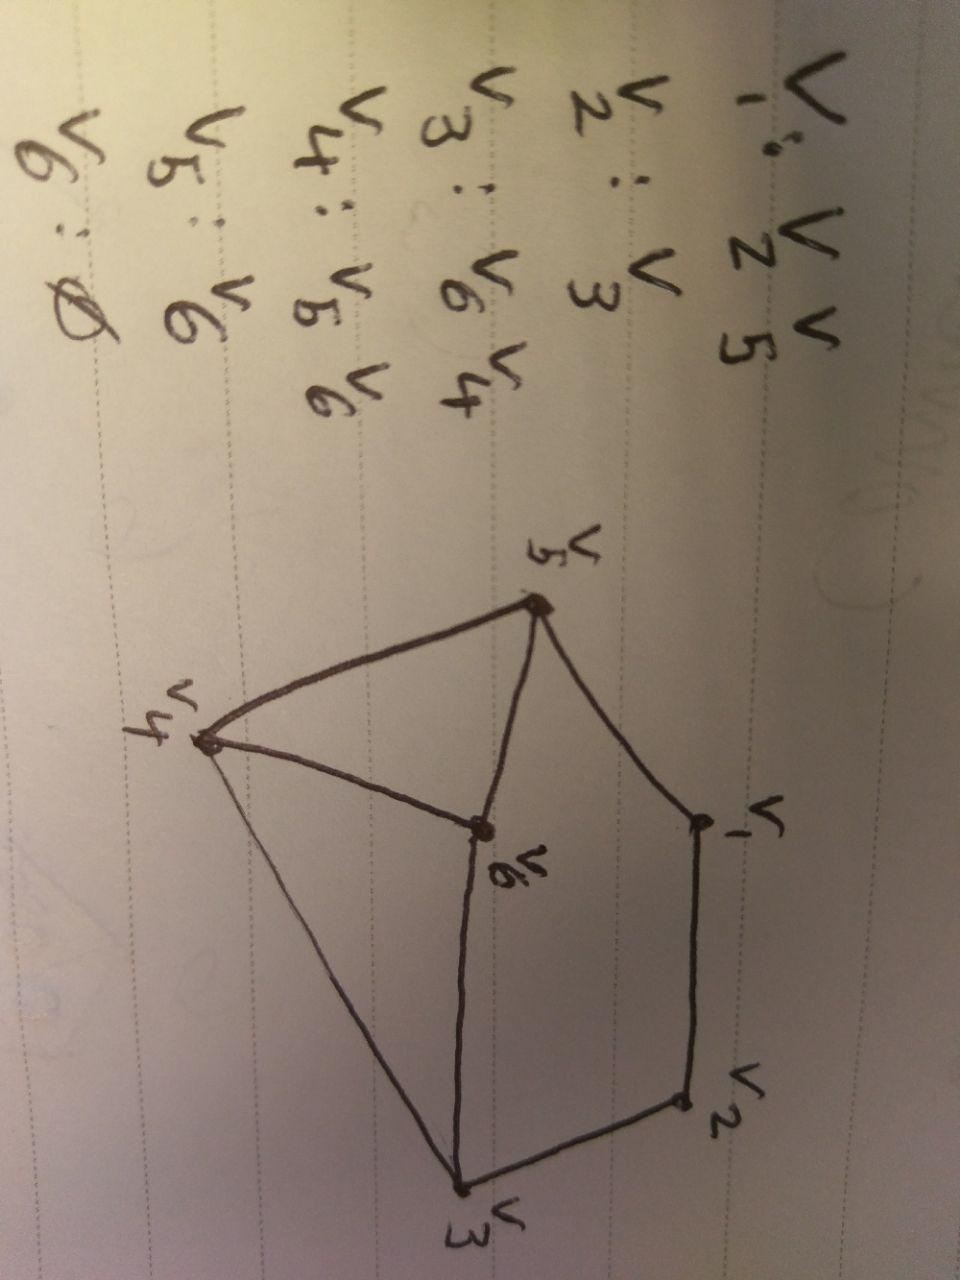 V1: V2 V5
V2: V3
V3: V6 V4
V4: V5 V6
V5: V6
V6: ∅
V5
V1
V4
V6
V2
V3